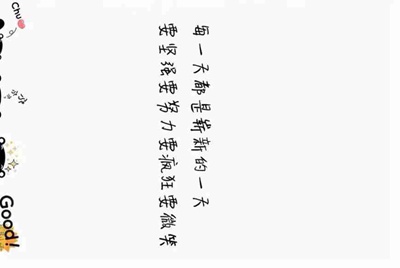 每一天都是崭新的一天
要坚强要努力要疯狂要微笑
Chu
Good!